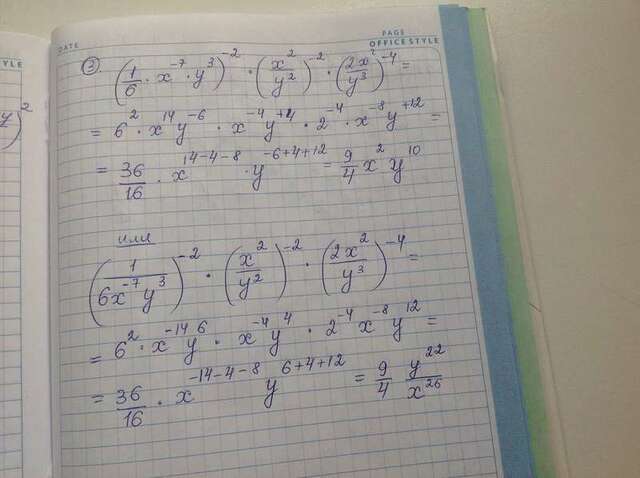 DATE
PAGE
OFFICE STYLE
YLE
③ (1/6 · x⁻⁷ · y³)⁻² · (x²/y²)⁻² · (2x²/y³)⁻⁴ =
= 6² · x¹⁴y⁻⁶ · x⁻⁴y⁺⁴ · 2⁻⁴ · x⁻⁸y⁺¹² =
= 36/16 · x¹⁴⁻⁴⁻⁸ · y⁻⁶⁺⁴⁺¹² = 9/4 x²y¹⁰
или
(1/6x⁻⁷y³)⁻² · (x²/y²)⁻² · (2x²/y³)⁻⁴ =
= 6² · x⁻¹⁴y⁶ · x⁻⁴y⁴ · 2⁻⁴x⁻⁸y¹² =
= 36/16 · x⁻¹⁴⁻⁴⁻⁸ y⁶⁺⁴⁺¹² = 9/4 y²²/x²⁶